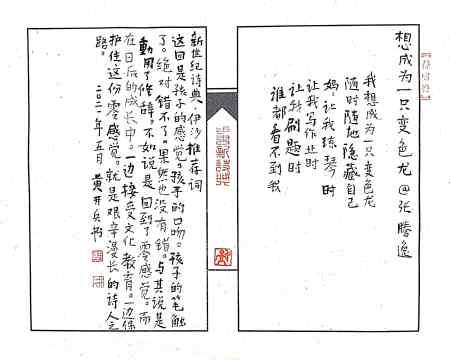 想成为一只变色龙@张腾逸
我想成为一只变色龙
随时随地隐藏自己
妈让我练琴时
让我写作业时
让我刷题时
谁都看不到我
新世纪诗典·伊沙推荐词
这回是孩子的感觉。孩子的口吻。孩子的笔触
了。绝对错不了。果然也没有错。与其说是
动用了修辞。不如说是回到了零感觉。而
在日后的成长中。一边接受文化教育。一边保
护住这份零感觉。就是艰辛漫长的诗人之
路。
二〇二一年五月 黄开兵书